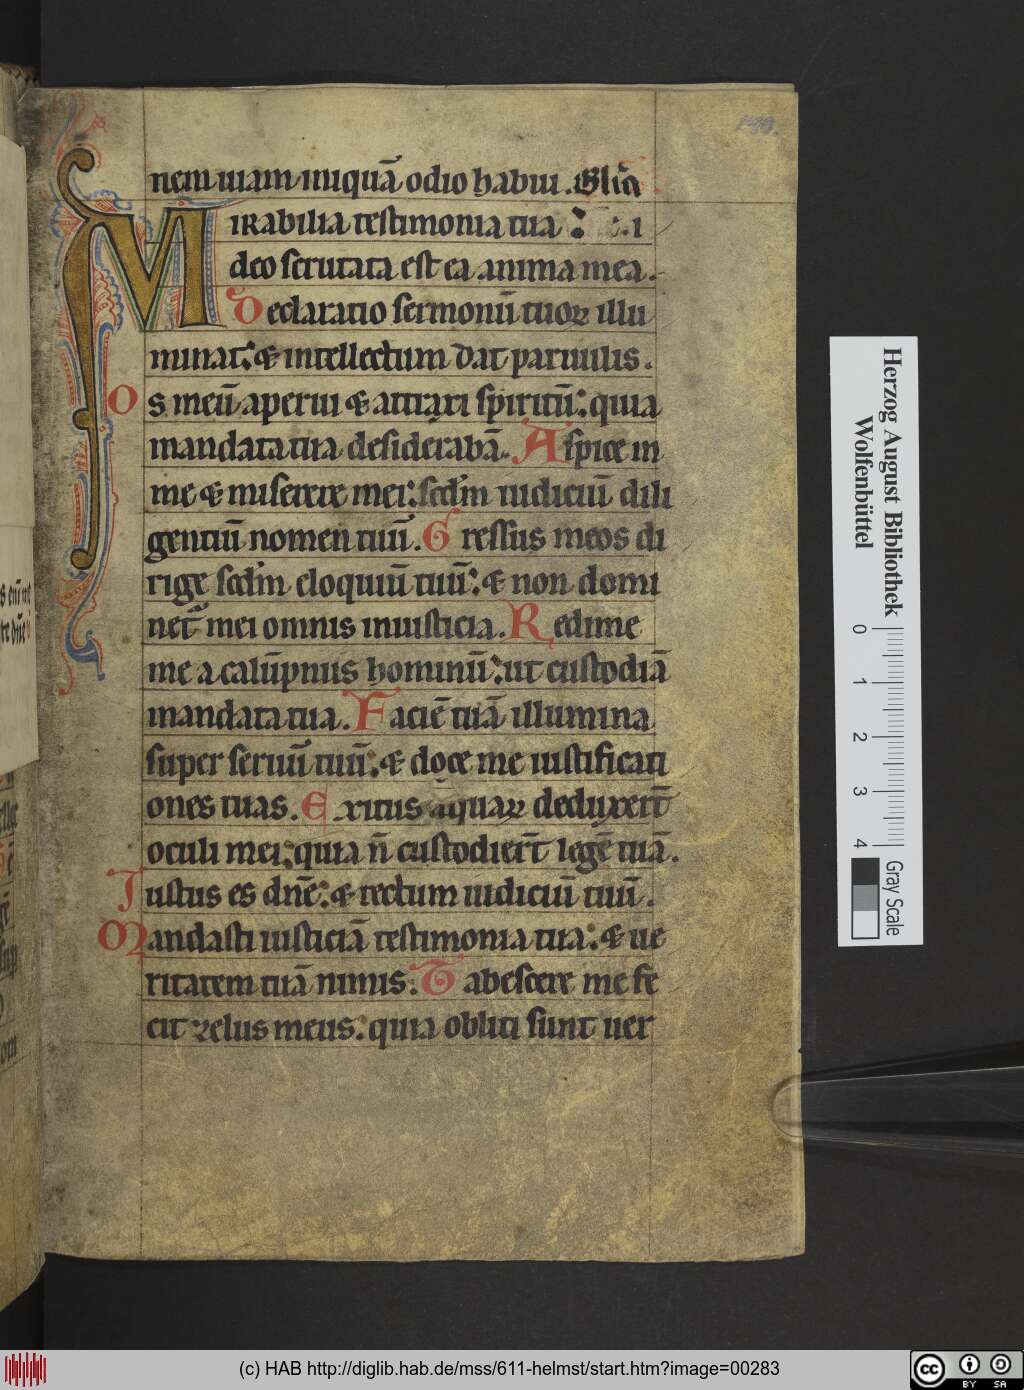 nem uiam iniquā odio habui. Gl'ia
MIRabilia testimonia tua : i
deo scrutata est ea anima mea.
Declaratio sermonū tuoꝝ illu
minat: & intellectum dat paruulis.
Os meū aperui & attraxi spiritū: quia
mandata tua desiderabā. Aspice in
me & miserere mei: scd'm iudiciū dili
gentiū nomen tuū. Gressus meos di
rige scd'm eloquiū tuū: & non domi
net̄ mei omnis iniusticia. Redime
me a calūpniis hominū: ut custodiā
mandata tua. Faciē tuā illumina
super seruū tuū: & doce me iustificati
ones tuas. Exitus aquaꝝ deduxerūt
oculi mei: quia n̄ custodier̄t legē tuā.
Iustus es dn̄e: & rectum iudiciū tuū.
Mandasti iusticiā testimonia tua: & ue
ritatem tuā nimis. Tabescere me fe
cit zelus meus: quia obliti sunt uer
Herzog August Bibliothek
Wolfenbüttel
0 1 2 3 4
Gray Scale
(c) HAB http://diglib.hab.de/mss/611-helmst/start.htm?image=00283
cc BY SA